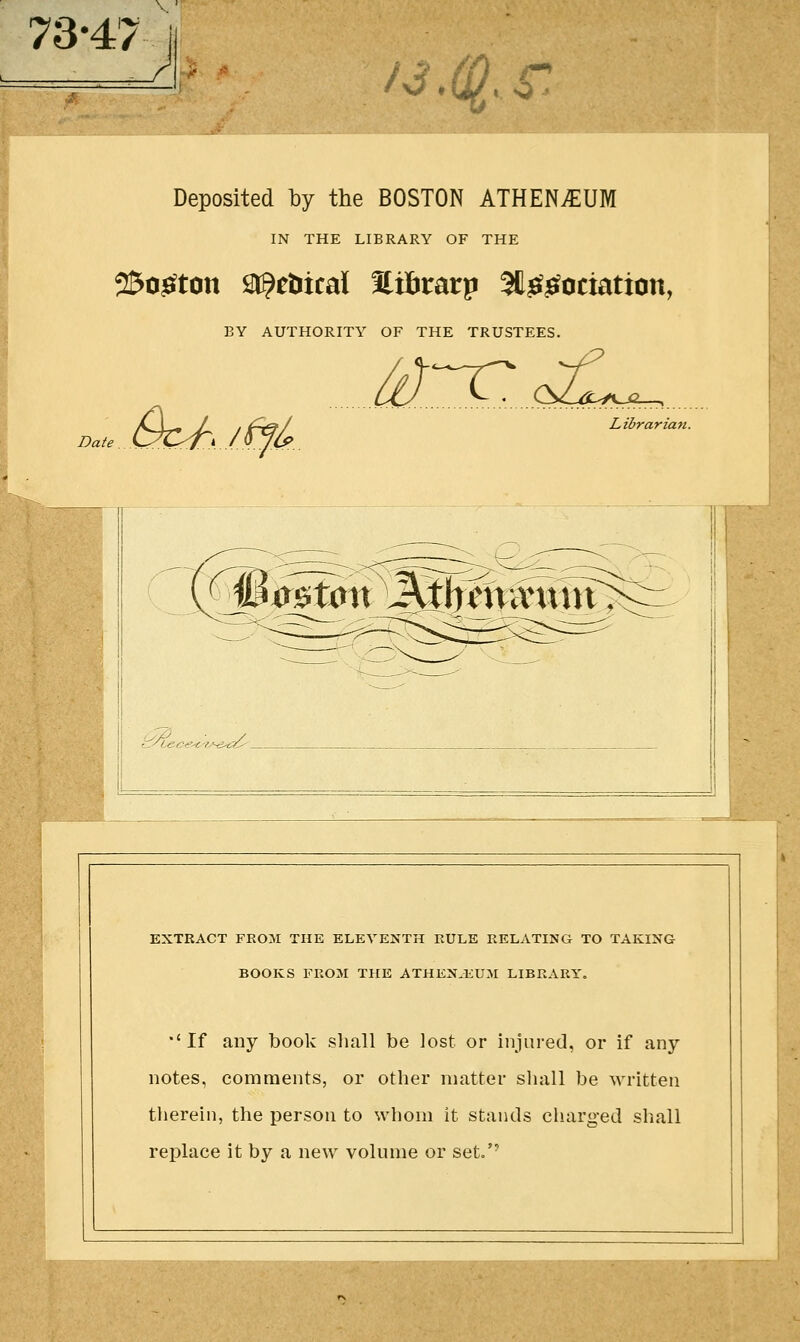 73·47
13.Q.5.
Deposited by the BOSTON ATHENÆUM
IN THE LIBRARY OF THE
Boston Medical Library Association,
BY AUTHORITY OF THE TRUSTEES.
W. C. Lane
Librarian.
Date Oct. 1896
Boston Athenæum.
Received
EXTRACT FROM THE ELEVENTH RULE RELATING TO TAKING
BOOKS FROM THE ATHENÆUM LIBRARY.
"If any book shall be lost or injured, or if any
notes, comments, or other matter shall be written
therein, the person to whom it stands charged shall
replace it by a new volume or set."